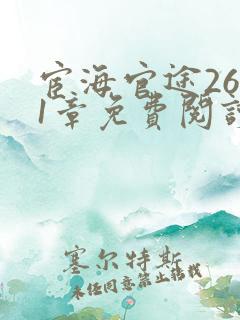 宦海官途26
1章免費閱讀
塞尔特斯
未经同意禁止转载